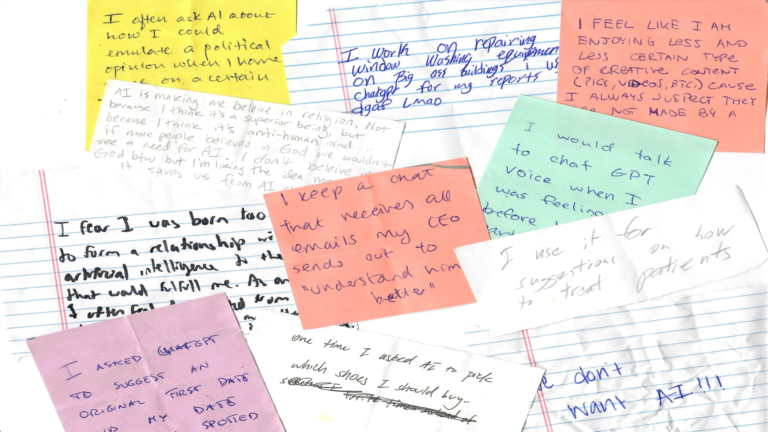 I often ask AI about
how I could
emulate a political
opinion when I have
on a certain
AI is making me believe in religion. Not
because I think it's a superior being, but
because I think it's anti-human and
if more people believed in God we wouldn't
see a need for AI. I don't believe in
God btw but I'm liking the idea more
it saves us from AI
I work on repairing
window washing equipment
on big ass buildings
chatgpt for my reports
dgaf Lmao
I FEEL LIKE I AM
ENJOYING LESS AND
LESS CERTAIN TYPE
OF CREATIVE CONTENT
(PICS, VIDEOS, ETC.) CAUSE
I ALWAYS SUSPECT THEY
NOT MADE BY A
I would talk
to chat GPT
voice when I
was feeling
before
I fear I was born too
to form a relationship
artificial intelligence to the
that would fulfill me. As an
I often
from
I keep a chat
that receives all
emails my CEO
sends out to
"understand him
better"
I use it for
suggestions on how
to treat patients
I ASKED CHATGPT
TO SUGGEST AN
ORIGINAL FIRST DATE
MY DATE
SPOTTED
one time I asked AI to pick
which shoes I should buy.
don't
want AI!!!